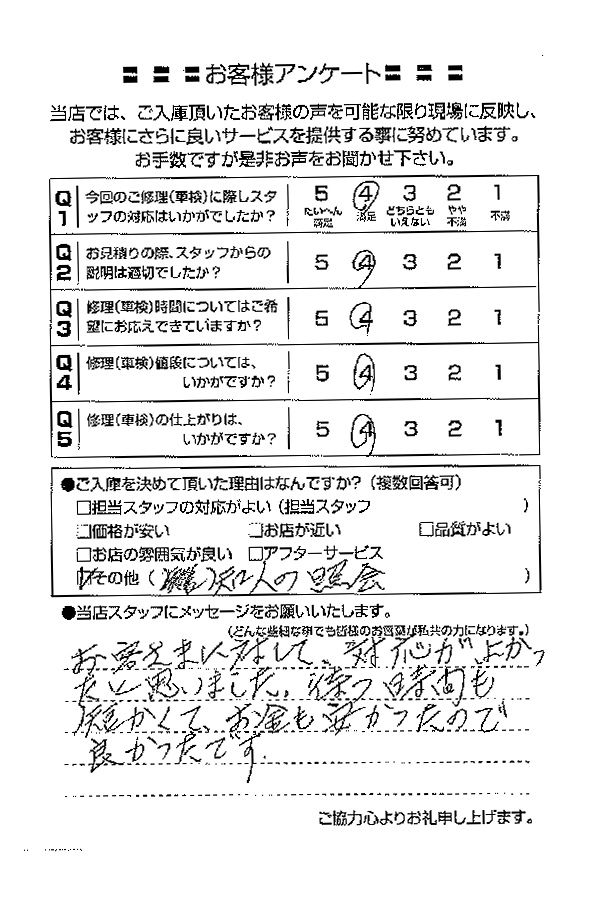 お客様アンケート
当店では、ご入庫頂いたお客様の声を可能な限り現場に反映し、
お客様にさらに良いサービスを提供する事に努めています。
お手数ですが是非お声をお聞かせ下さい。
Q1 今回のご修理(車検)に際しスタ
ッフの対応はいかがでしたか?
5 4 3 2 1
たいへん満足 満足 どちらともいえない やや不満 不満
Q2 お見積りの際、スタッフからの
説明は適切でしたか?
5 4 3 2 1
Q3 修理(車検)時間についてはご希
望にお応えできていますか?
5 4 3 2 1
Q4 修理(車検)値段については、
いかがですか?
5 4 3 2 1
Q5 修理(車検)の仕上がりは、
いかがですか?
5 4 3 2 1
●ご入庫を決めて頂いた理由はなんですか?(複数回答可)
□担当スタッフの対応がよい(担当スタッフ )
□価格が安い □お店が近い □品質がよい
□お店の雰囲気が良い □アフターサービス
☑その他( 知人の照会 )
●当店スタッフにメッセージをお願いいたします。
(どんな些細な事でも皆様のお言葉が私共の力になります。)
お客さまに対して、対応がよかっ
たと思いました。待つ時間も
短かくて、お金も安かったので
良かったです。
ご協力心よりお礼申し上げます。